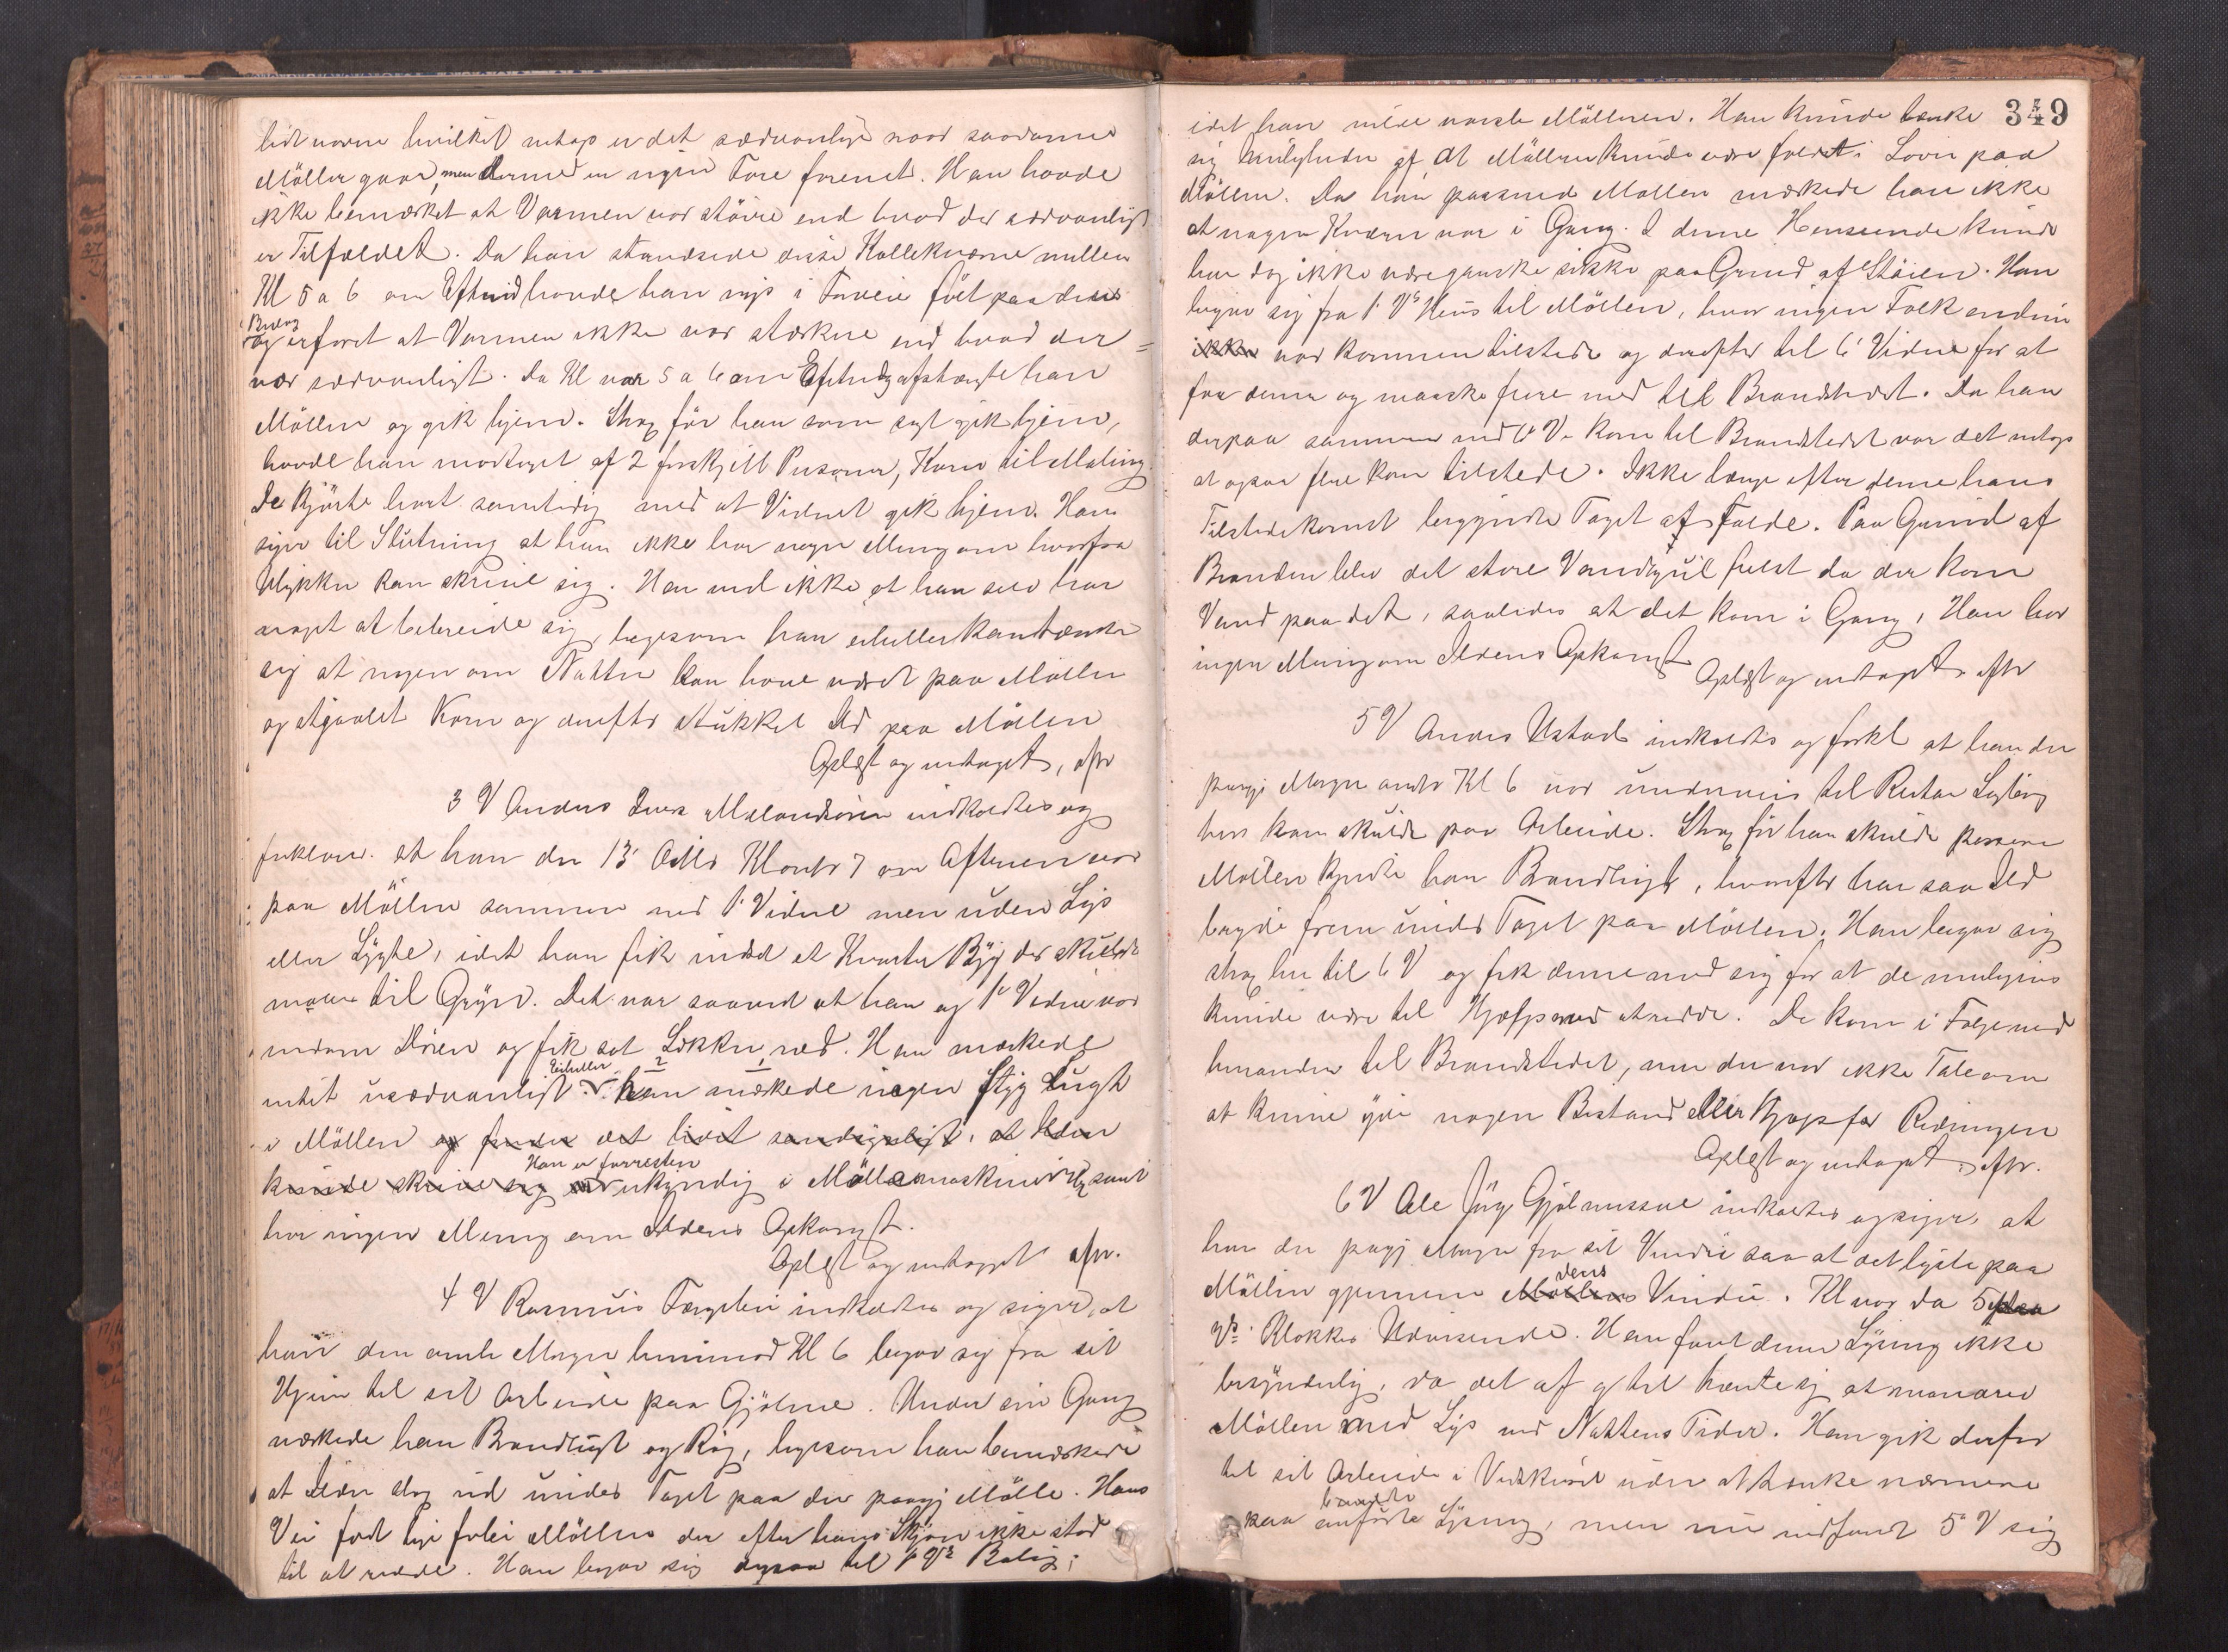 lidt varm hvilket netop er det sædvanlige naar saadanne
Möller gaar, men dermed er ingen Fare forenet. Han havde
ikke bemærket at Varmen var större end hvad der sædvanligt
er Tilfældet. Da han standsede disse Kalleknærne mellem
Kl 5 a 6 om Eftmid havde han nys i Forveien fölt paa deres
Bevæg
og erfaret at Varmen ikke var stærkere end hvad der
var sædvanligt. Da Kl var 5 a 6 om Eftmdg afstængte han
Möllen og gik hjem. Strax för han som sagt gik hjem,
havde han modtaget af 2 forskjell Personer, Korn til Maling.
De kjörte bort samtidig med at Vidnet gik hjem. Han
siger til Slutning at han ikke har nogen Mening om hvorfra
Ulykken kan skrive sig. Han ved ikke at han selv har
noget at bebreide sig, ligesom han eiheller kan tænke
sig at nogen om Natten kan have været paa Möllen
og stjaalet Korn og derefter stukket Ild paa Möllen
Oplæst og vedtaget, aftr
3 V Anders Iver Melandsöien indkaldtes og
forklarer at han den 13' Octbr Kl omtr 7 om Aftenen var
paa Möllen sammen med 1' Vidne men uden Lys
eller Lygte, idet han fik indsat et Kvarter Byg der skulde
males til Gryn. Det var saavidt at han og 1' Vidne var
indom Dören og fik sat Sækken ned. Han mærkede
Eiheller
intet usædvanligt. han mærkede ingen styg Lugt
i Möllen og finder det lidet sandsynligt, at Ilden
Han er forresten
kunde skrive sig ukyndig i Möllemaskineri samt
har ingen Mening om Ildens Opkomst.
Oplæst og vedtaget aftr.
4 V Rasmus Fargelien indkaldtes og siger, at
han den omh Morgen henimod Kl 6 begav sig fra sit
Hjem til sit Arbeide paa Gjölme. Under sin Gang
mærkede han Brandlugt og Rög, ligesom han bemærkede
at Ilden slog ud under Taget paa den paagj Mölle. Hans
Vei faldt lige forbi Möllen der efter hans Skjön ikke stod
til at redde. Han begav sig derpaa til 1' Vs Bolig;
349
idet han vilde varsle Mölleren. Han kunde tænke
sig Muligheden af at Mölleren kunde være faldt i Sövn paa
Möllen. Da han passerede Möllen mærkede han ikke
at nogen Kværn var i Gang. I denne Henseende kunde
han dog ikke være ganske sikker paa Grund af Stöien. Han
begav sig fra 1' Vs Hus til Möllen, hvor ingen Folk endnu
ikke var kommen tilstede og derefter til 6' Vidne for at
faa denne og maaske flere med til Brandstedet. Da han
derpaa sammen med 6' V. kom til Brandstedet var det netop
at ogsaa flere kom tilstede. Ikke længe efter denne hans
Tilstedekomst begyndte Taget at falde. Paa Grund af
Branden blev det store Vandhjul frelst da der kom
Vand paa det, saaledes at det kom i Gang, Han har
ingen Mening om Ildens Opkomst
Oplæst og vedtaget aftr
5 V Anders Ustad indkaldtes og forkl at han den
paagj Morgen omtr Kl 6 var underveis til
hvor han skulde paa Arbeide. Strax för han skulde passere
Möllen kjendte han Brandlugt, hvorefter han saa Ild
bryde frem under Taget paa Möllen. Han begav sig
strax hen til 6 V og fik denne med sig for at de muligens
kunde være til Hjælp med at redde. De kom i Fölge med
hinanden til Brandstedet, men der var ikke Tale om
at kunne yde nogen Bistand eller Hjælp for Redningen
Oplæst og vedtaget, aftr.
6 V Ole Jörg Gjölmessve indkaldtes og siger, at
han den paagj Morgen fra sit Vindu saa at det lyste paa
dens
Möllen gjennem Möllens Vindu. Kl var da 5
Vs. Klokkes Udvisende. Han fandt denne Lysning ikke
besynderlig, da det af og til hænte sig at man var i
Möllen med Lys ved Nattens Tider. Han gik derfor
til sit Arbeide i Vedskjulet uden at tænke nærmere
omhandlede
paa anförte Lysning, men nu indfandt 5' V sig